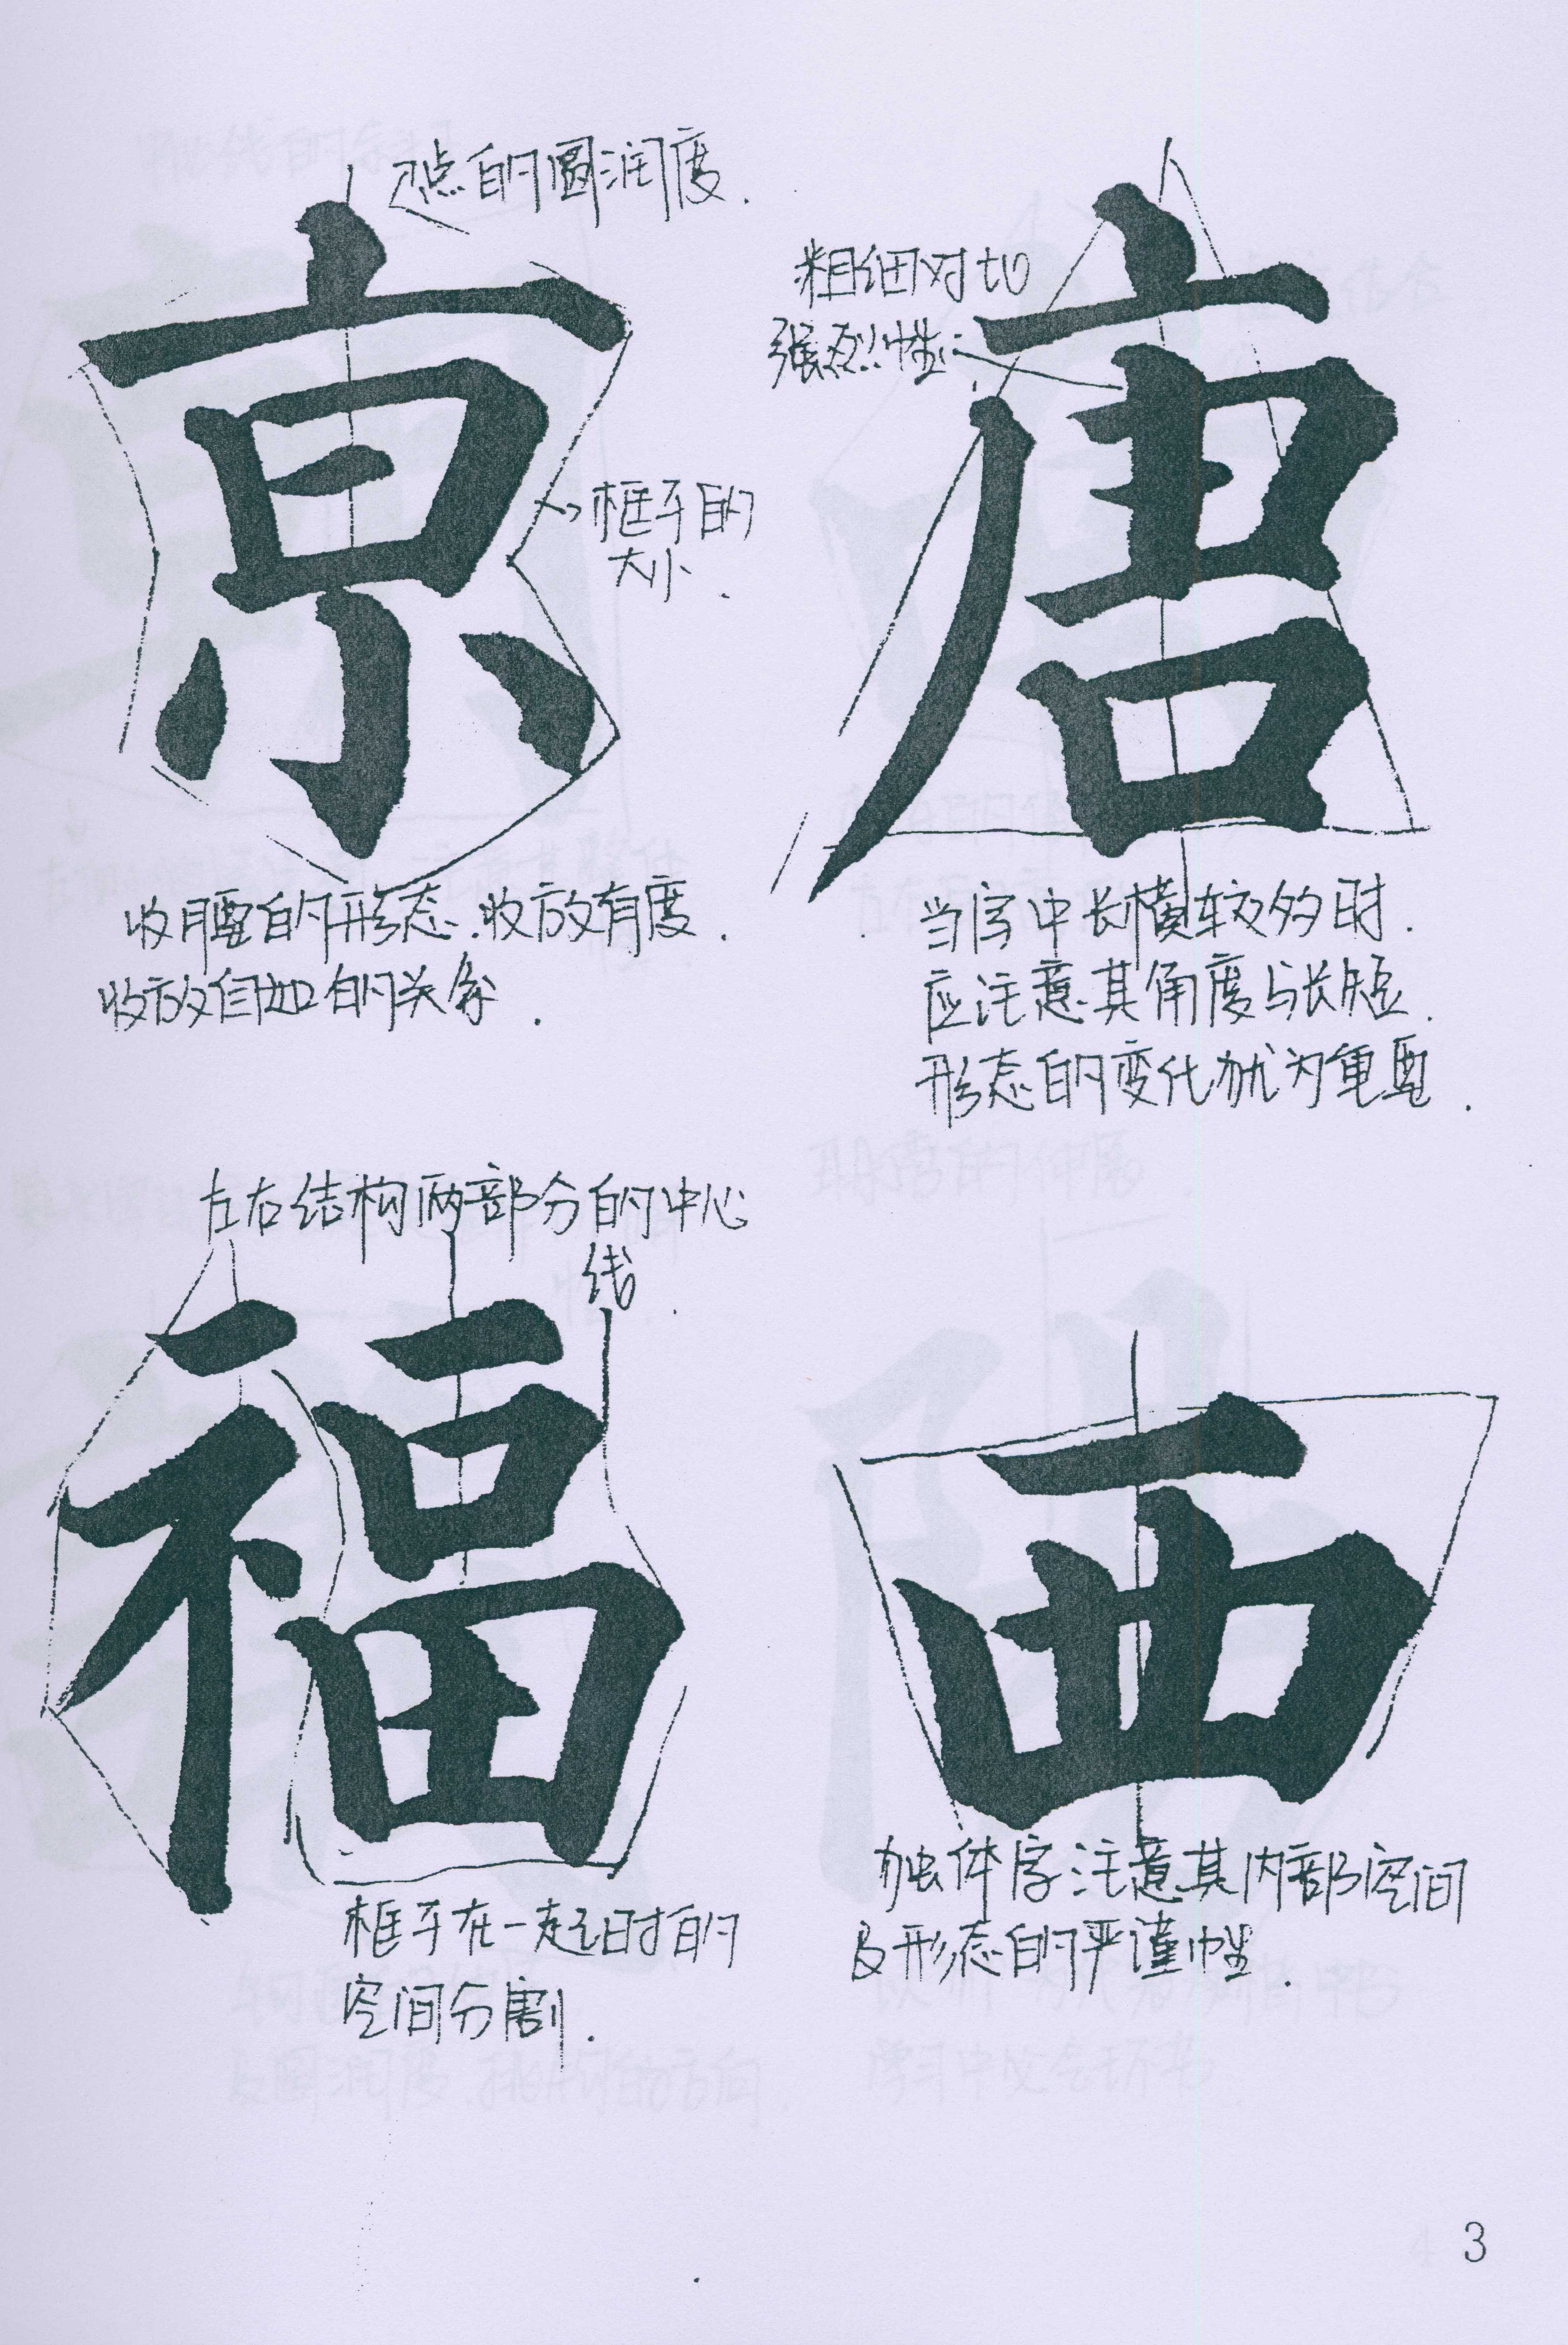 点的圆润度.
京
框子的
大小.
收腰的形态.收放有度.
收放自如的关系.
粗细对比
强烈性
唐
当字中长横较多时.
应注意其角度与长短.
形态的变化尤为重要.
左右结构两部分的中心
线.
福
框子在一起时的
空间分割.
西
独体字注意其内部空间
及形态的严谨性.
3